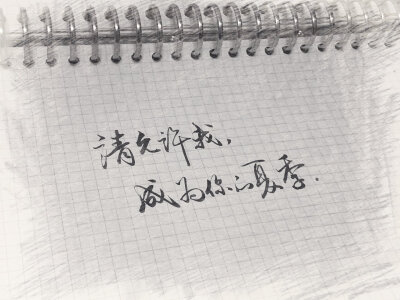 请允许我，
成为你的夏季.